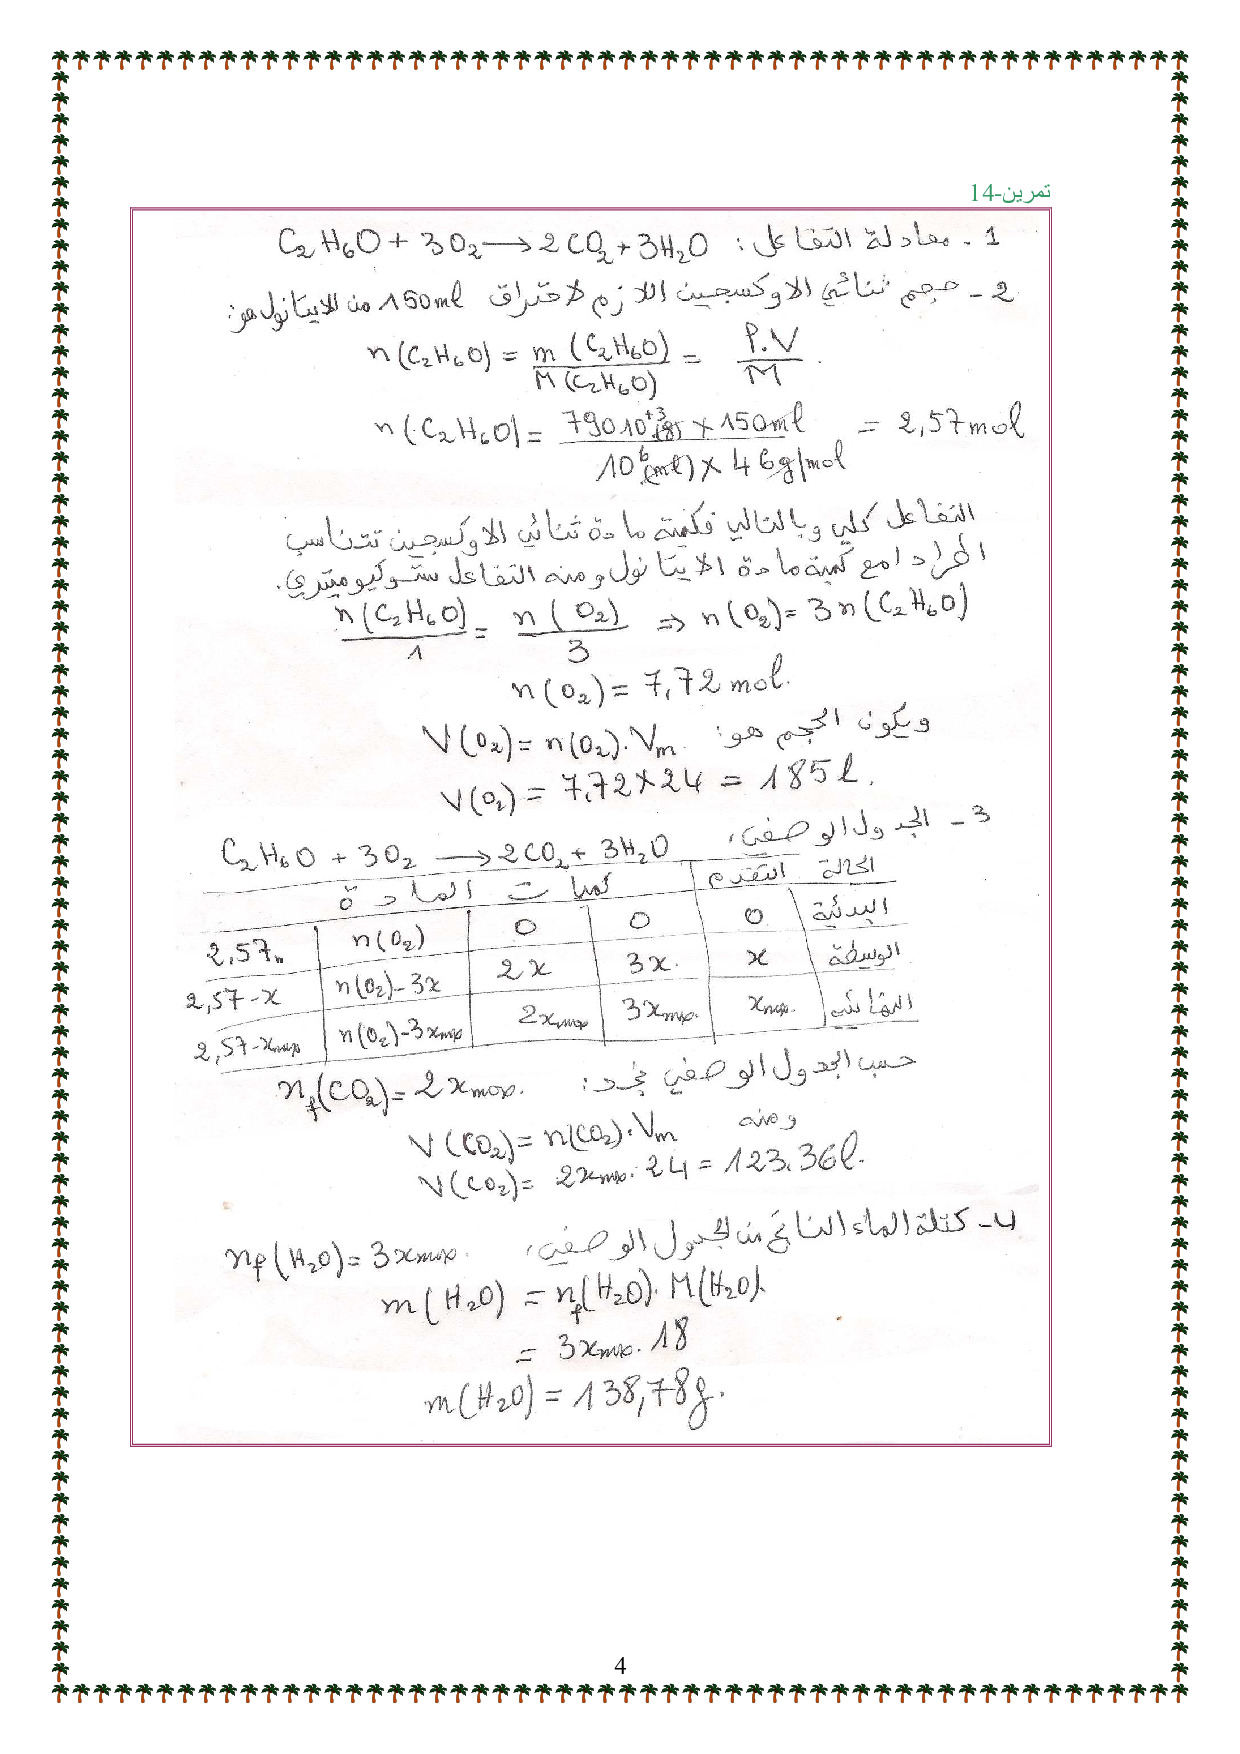 تمرين-14
1 - معادلة التفاعل : C₂H₆O + 3O₂ ⟶ 2CO₂ + 3H₂O
2 - حجم ثنائي الاوكسجين اللازم لاحتراق 150ml من الايتانول هو:
n(C₂H₆O) = m(C₂H₆O) / M(C₂H₆O) = ρ.V / M .
n(C₂H₆O) = 790 10⁺³(g) × 150ml / 10⁶(ml) × 46g/mol = 2,57mol
التفاعل كلي وبالتالي فكمية مادة ثنائي الاوكسجين تتناسب
اطرادا مع كمية مادة الايتانول ومنه التفاعل ستوكيوميتري.
n(C₂H₆O) / 1 = n(O₂) / 3 ⇒ n(O₂) = 3n(C₂H₆O)
n(O₂) = 7,72 mol.
ويكون الحجم هو: V(O₂) = n(O₂).Vm
V(O₂) = 7,72 × 24 = 185 l.
3 - الجدول الوصفي:
C₂H₆O + 3O₂ ⟶ 2CO₂ + 3H₂O
الحالة التقدم كميات المادة
البدئية 0 0 0 n(O₂) 2,57
الوسطية x 3x 2x n(O₂)-3x 2,57-x
النهائي xmax 3xmax 2xmax n(O₂)-3xmax 2,57-xmax
حسب الجدول الوصفي نجد: nf(CO₂) = 2xmax.
ومنه V(CO₂) = n(CO₂).Vm
V(CO₂) = 2xmax.24 = 123.36l.
4 - كتلة الماء الناتج من الجدول الوصفي: nf(H₂O) = 3xmax.
m(H₂O) = nf(H₂O). M(H₂O).
= 3xmax. 18
m(H₂O) = 138,78g.
4